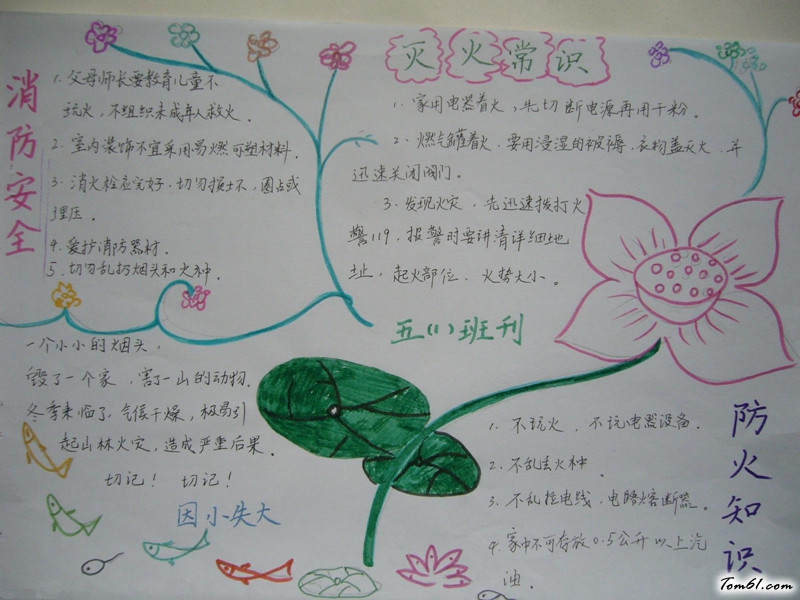 消防安全
1. 父母师长要教育儿童不
玩火，不组织未成年人救火。
2. 室内装饰不宜采用易燃可塑材料.
3. 消火栓应完好，切勿损坏，圈占或
埋压。
4. 爱护消防器材.
5. 切勿乱扔烟头和火种.
灭火常识
1. 家用电器着火，先切断电源再用干粉.
2. 燃气罐着火，要用浸湿的被褥、衣物盖灭火，并
迅速关闭阀门。
3. 发现火灾，先迅速拨打火
警119，报警时要讲清详细地
址，起火部位、火势大小。
五(1)班刊
一个小小的烟头，
毁了一个家，害了一山的动物.
冬季来临了，气候干燥，极易引
起山林火灾，造成严重后果.
切记！ 切记！
因小失大
防火知识
1. 不玩火，不玩电器设备.
2. 不乱丢火种.
3. 不乱拉电线，电路熔断。
4. 家中不可存放0.5公升以上汽
油.
Tom61.com